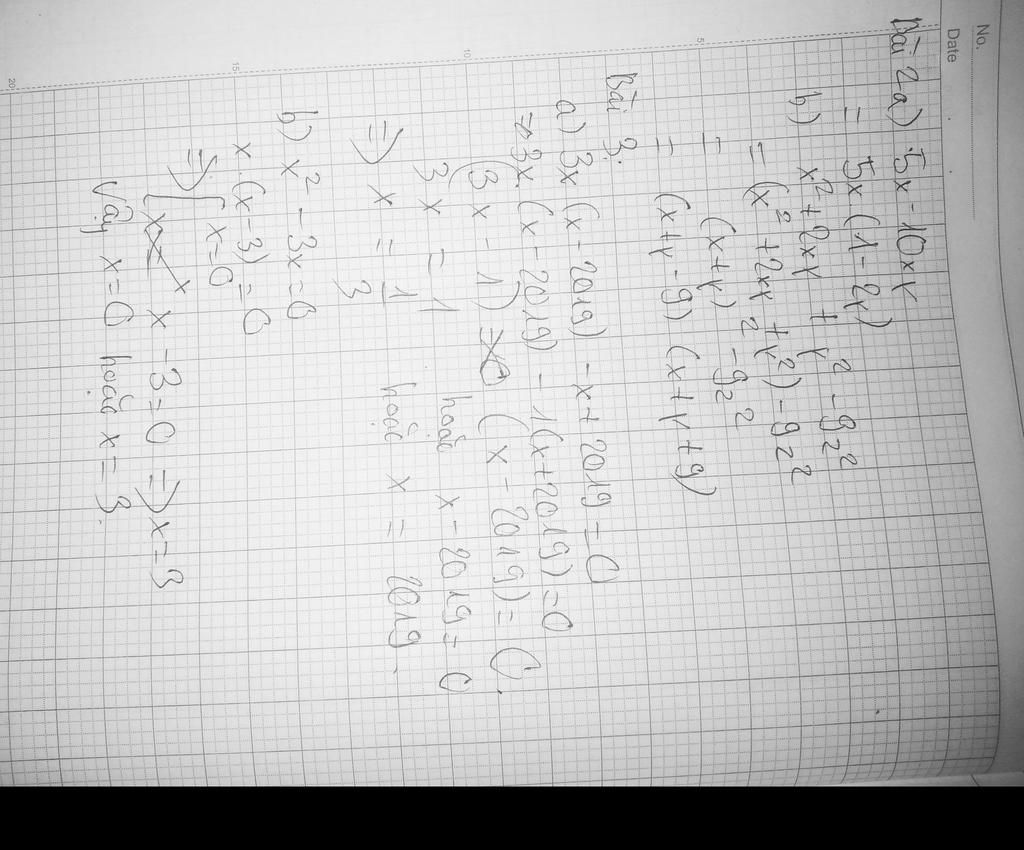 No.
Date
Bài 2a) 5x - 10xy
= 5x (1 - 2y)
b) x² + 2xy + y² - 9z²
= (x² + 2xy + y²) - 9z²
= (x+y)² - 9z²
= (x+y - 9) (x+y+9)
Bài 3:
a) 3x (x - 2019) - x + 2019 = 0
=> 3x (x - 2019) - 1(x+2019) = 0
(3x - 1) (x - 2019) = 0.
3x = 1 hoặc x - 2019 = 0
=> x = 1/3 hoặc x = 2019.
b) x² - 3x = 0
x.(x-3) = 0
=> [ x = 0
x - 3 = 0 => x = 3
Vậy x = 0 hoặc x = 3.
5
10
15
20